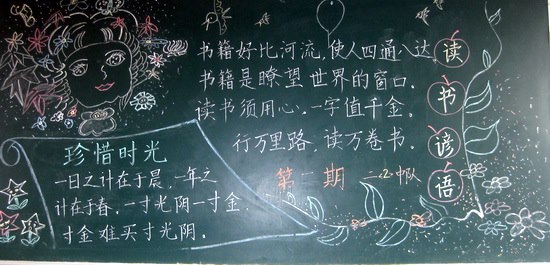 书籍好比河流,使人四通八达,
书籍是瞭望世界的窗口。
读书须用心,一字值千金。
行万里路,读万卷书。
读书谚语
第一期 二、2中队
珍惜时光
一日之计在于晨,一年之
计在于春,一寸光阴一寸金,
寸金难买寸光阴。